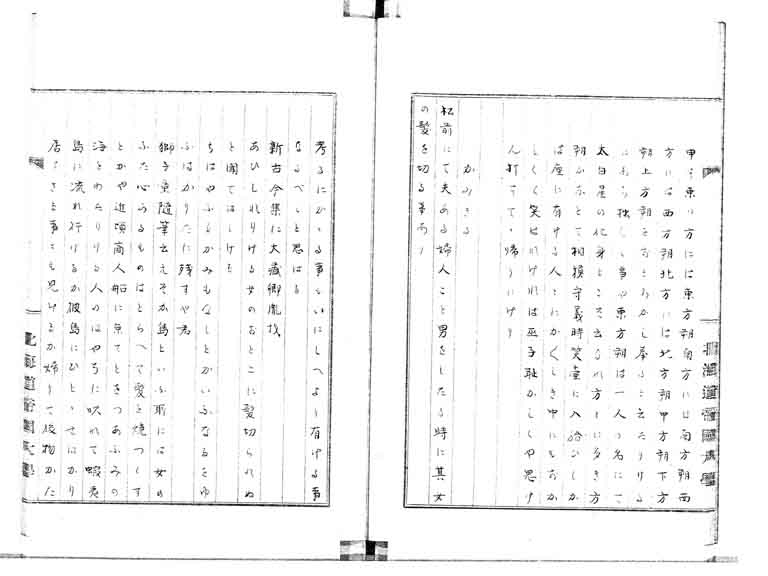 甲は東の方には東方朔南方には南方朔西
方には西方朔北方には北方朔甲方朔下方
朔上方朔をおきおかし奉ると云たりける
にあら独しき事や東方朔は一人の名にて
太白星の化身とこそ云るれ方々に多き方
朔かなとて相模守義時笑壷に入給ひしか
は座に有ける人々にかくしき中にもをか
しくて笑はれければ巫子耻かししや思け
ん打すて々帰りにけり
かみきる
松前にて夫ある婦人こと男をしたる時に其女
の髪を切る事あり
考るにかゝる事はいにしへより有ける事
なるべしと思はる
新古今集に大蔵卿胤材
あひしれりける女のおとこに髪切られぬ
と聞てはしける
ちはやふるかみもなしとかいふなるをゆ
ふはかりたに残すや君
獅子童随筆云えそか島といふ所には女の
ふた心あるものはとらへて愛を焼つしす
とかや近頃商人船に乗てとをつあふみの
海をわたりける人のはやちに吹れて蝦夷
島に流れ行けるか彼島にひとゝせはかり
居てさる事とも見けるか帰りて後物かた
北海道帝国大学
北海道帝国大学